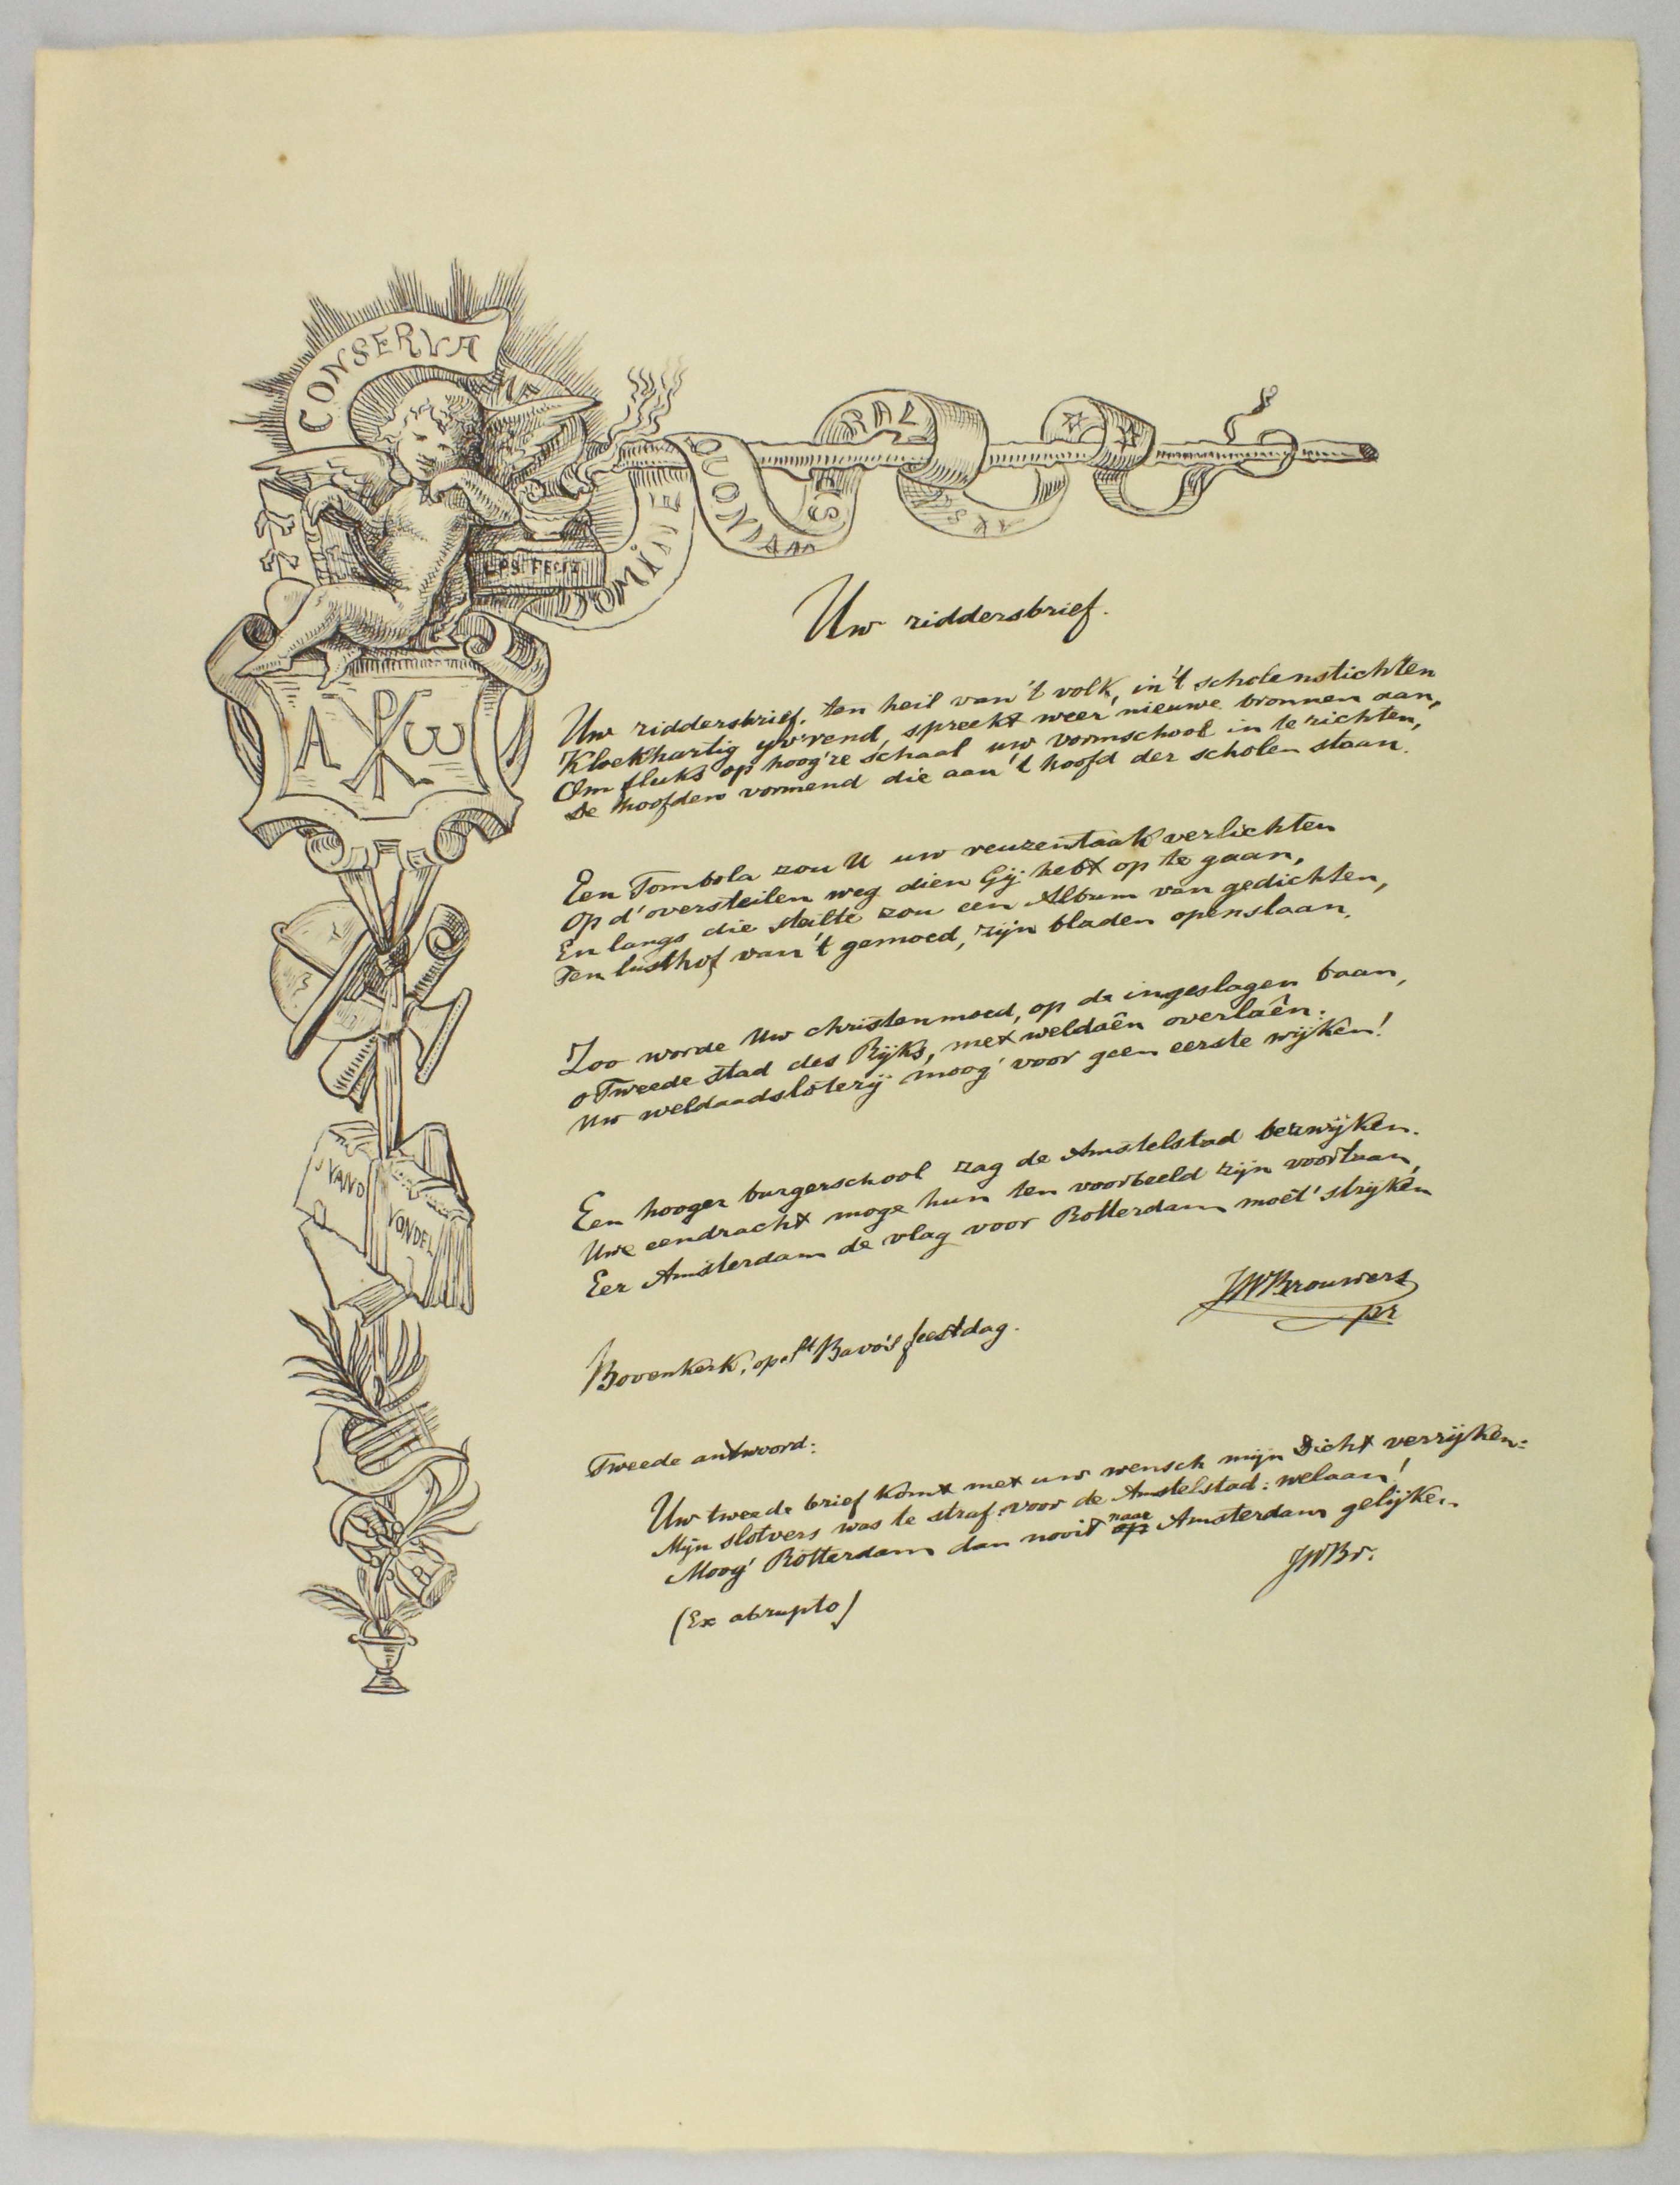 CONSERVA
DOMINE
QUONIAM
A
ω
J VAND
VONDEL
Uw riddersbrief.
Uw riddersbrief, ten heil van 't volk, in 't scholenstichten
Kloekhartig yv'rend, spreekt weer nieuwe bronnen aan,
Om fluks op hoog're schaal uw vormschool in te richten,
De hoofden vormend die aan 't hoofd der scholen staan.
Een Tombola zou U uw reuzentaak verlichten
Op d'oversteilen weg dien Gij hebt op te gaan,
En langs die steilte zou een Album van gedichten,
Ten lusthof van 't gemoed, zijn bladen openslaan.
Zoo worde Uw christenmoed, op de ingeslagen baan,
o Tweede stad des Rijks, met weldaên overlaên:
Uw weldaadsloterij moog' voor geen eerste wijken!
Een hooger burgerschool zag de Amstelstad bezwijken.
Uwe eendracht moge hun ten voorbeeld zijn voortaan,
Eer Amsterdam de vlag voor Rotterdam moet' strijken
JWBrouwers
pr
Bovenkerk, op St Bavo's feestdag.
Tweede antwoord:
Uw tweede brief komt met uw wensch mijn Dicht verrijken:
Mijn slotvers was te straf voor de Amstelstad: welaan!
Moog' Rotterdam dan nooit op naar Amsterdam gelijken
JWBr.
(Ex abrupto)